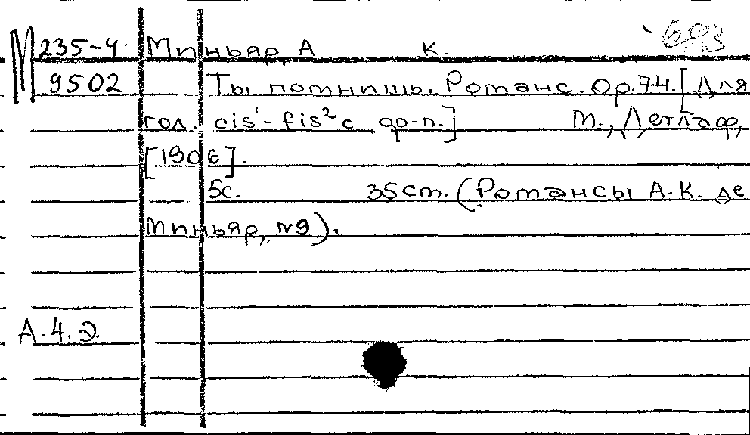 М 235-4 Миньяр, А К. 693
9502 Ты помнишь. Романс. Ор.74. [Для
гол. cis¹-fis² с ф-п.] М., Детлаф,
[1906].
5с. 35см. (Романсы А.К. де
Миньяр, №9).
А.4.2